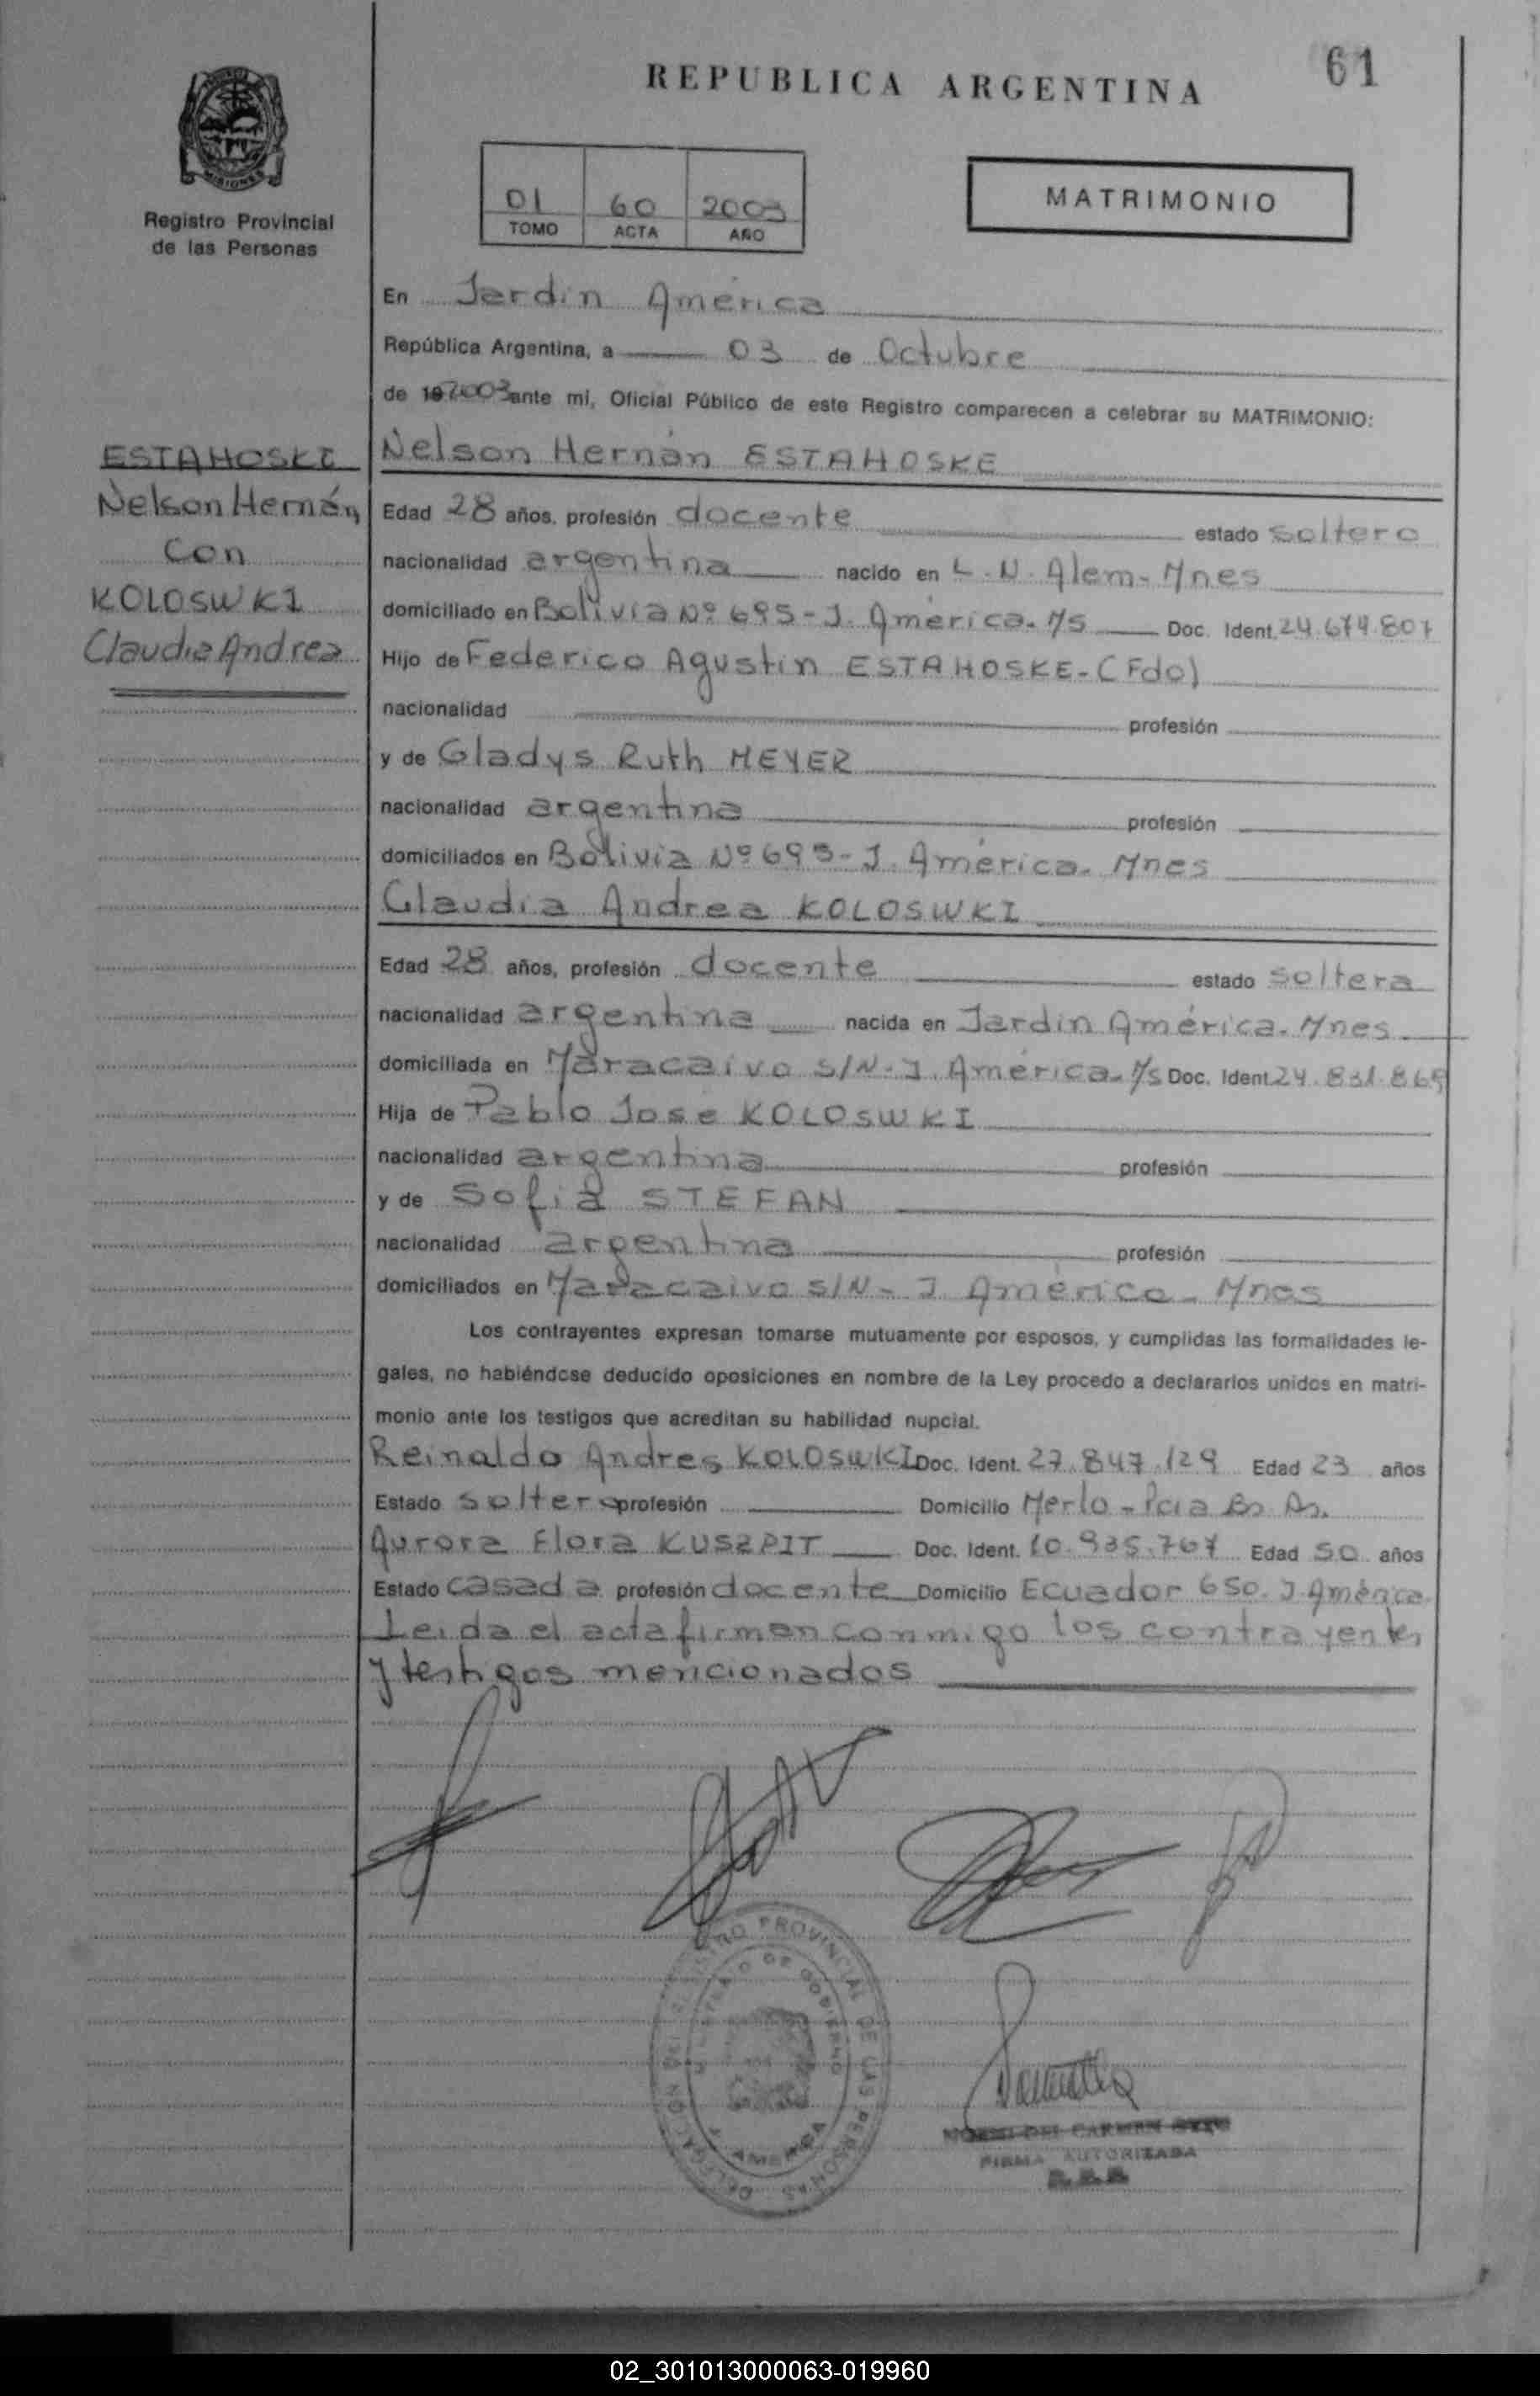 REPUBLICA ARGENTINA
61
MISIONES
Registro Provincial
de las Personas
01 60 2003
TOMO ACTA AÑO
MATRIMONIO
En Jardín América
República Argentina, a 03 de Octubre
de 19 2003 ante mi, Oficial Público de este Registro comparecen a celebrar su MATRIMONIO:
ESTAHOSKE
Nelson Hernán
Con
KOLOSWKI
Claudia Andrea
Nelson Hernán ESTAHOSKE
Edad 28 años, profesión docente estado soltero
nacionalidad argentina nacido en L.N. Alem- Mnes
domiciliado en Bolivia Nº 695- J. América. M/s Doc. Ident. 24.674.807
Hijo de Federico Agustin ESTAHOSKE-(Fdo)
nacionalidad profesión
y de Gladys Ruth MEYER
nacionalidad argentina profesión
domiciliados en Bolivia Nº 695- J. América. Mnes
Claudia Andrea KOLOSWKI
Edad 28 años, profesión docente estado soltera
nacionalidad argentina nacida en Jardín América. Mnes
domiciliada en Maracaivo S/N- J. América- M/s Doc. Ident. 24.831.869
Hija de Pablo José KOLOSWKI
nacionalidad argentina profesión
y de Sofia STEFAN
nacionalidad argentina profesión
domiciliados en Maracaivo S/N- J América- Mnes
Los contrayentes expresan tomarse mutuamente por esposos, y cumplidas las formalidades le-
gales, no habiéndose deducido oposiciones en nombre de la Ley procedo a declararlos unidos en matri-
monio ante los testigos que acreditan su habilidad nupcial.
Reinaldo Andres KOLOSWKI Doc. Ident. 27.847.129 Edad 23 años
Estado soltero profesión Domicilio Merlo- Pcia Bs As.
Aurora Flora KUSZPIT Doc. Ident. 10.935.767 Edad 50 años
Estado casada profesión docente Domicilio Ecuador 650. J. América
Leida el acta firman conmigo los contrayentes
y testigos mencionados
DELEGACION DEL REGISTRO PROVINCIAL DE LAS PERSONAS
MINISTERIO DE GOBIERNO
J. AMERICA
DEL CARMEN
FIRMA AUTORIZADA
02_301013000063-019960